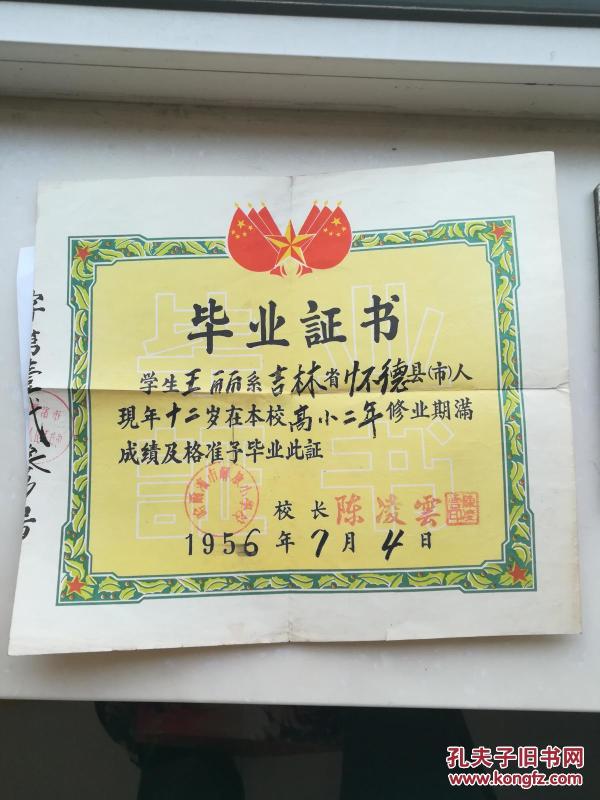 毕业証书
学生王丽系吉林省怀德县(市)人
現年十二岁在本校高小二年修业期滿
成績及格准予毕业此証
校长 陈凌雲
1956年7月4日
字第壹弍
号
孔夫子旧书网
www.kongfz.com